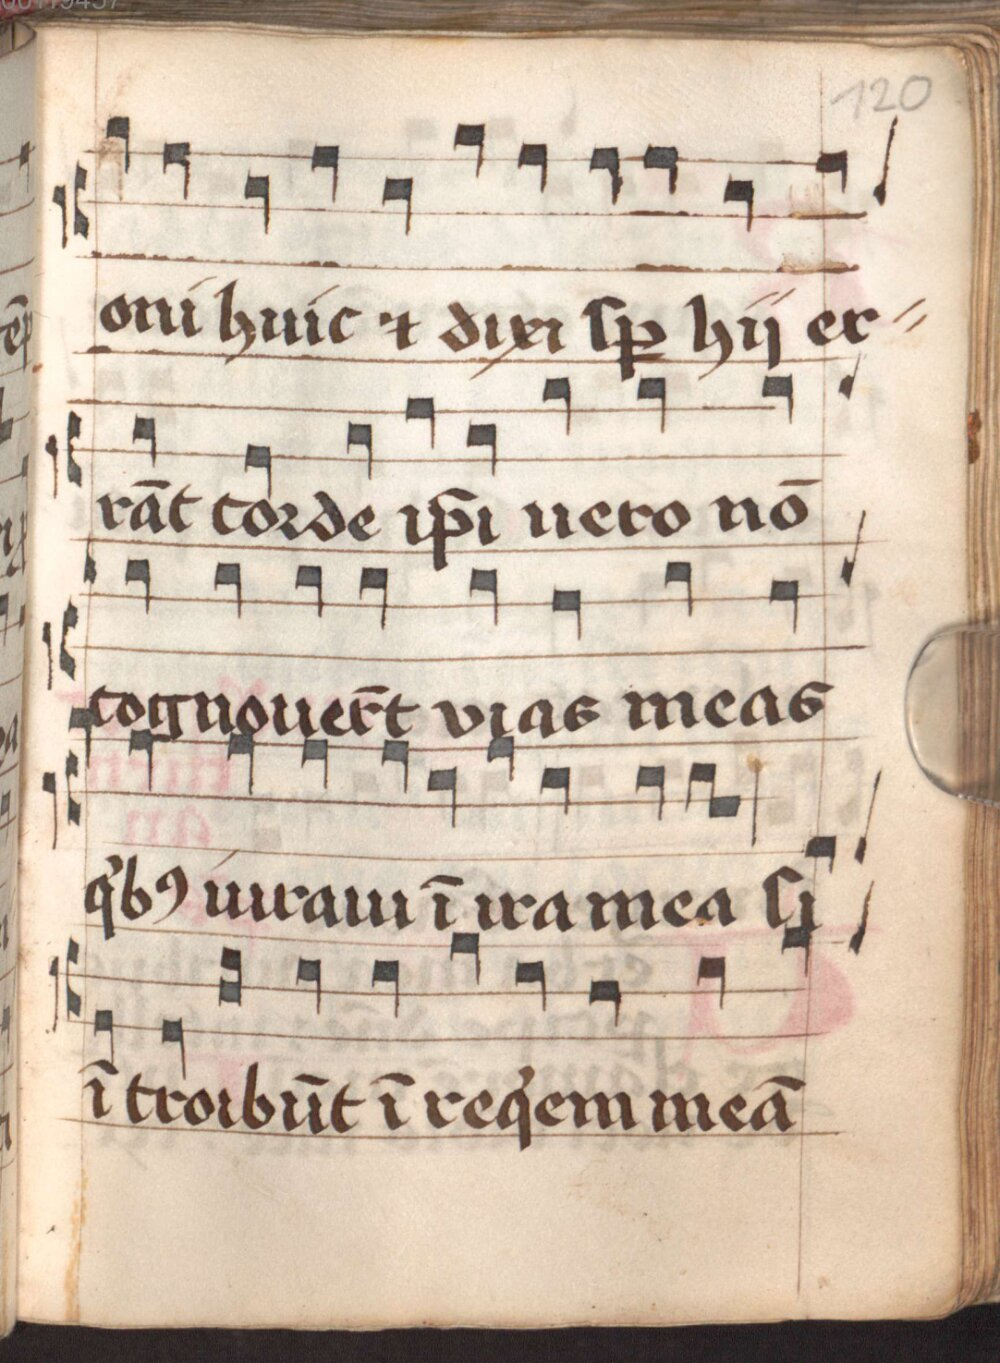 120
oni huic ⁊ dixi sꝑ hij er⸗
rāt corde ip̄i uero nō
cognouer̄t vias meas
qͥbꝯ iuraui ī ira mea si
ī troibūt ī reqͥem meā